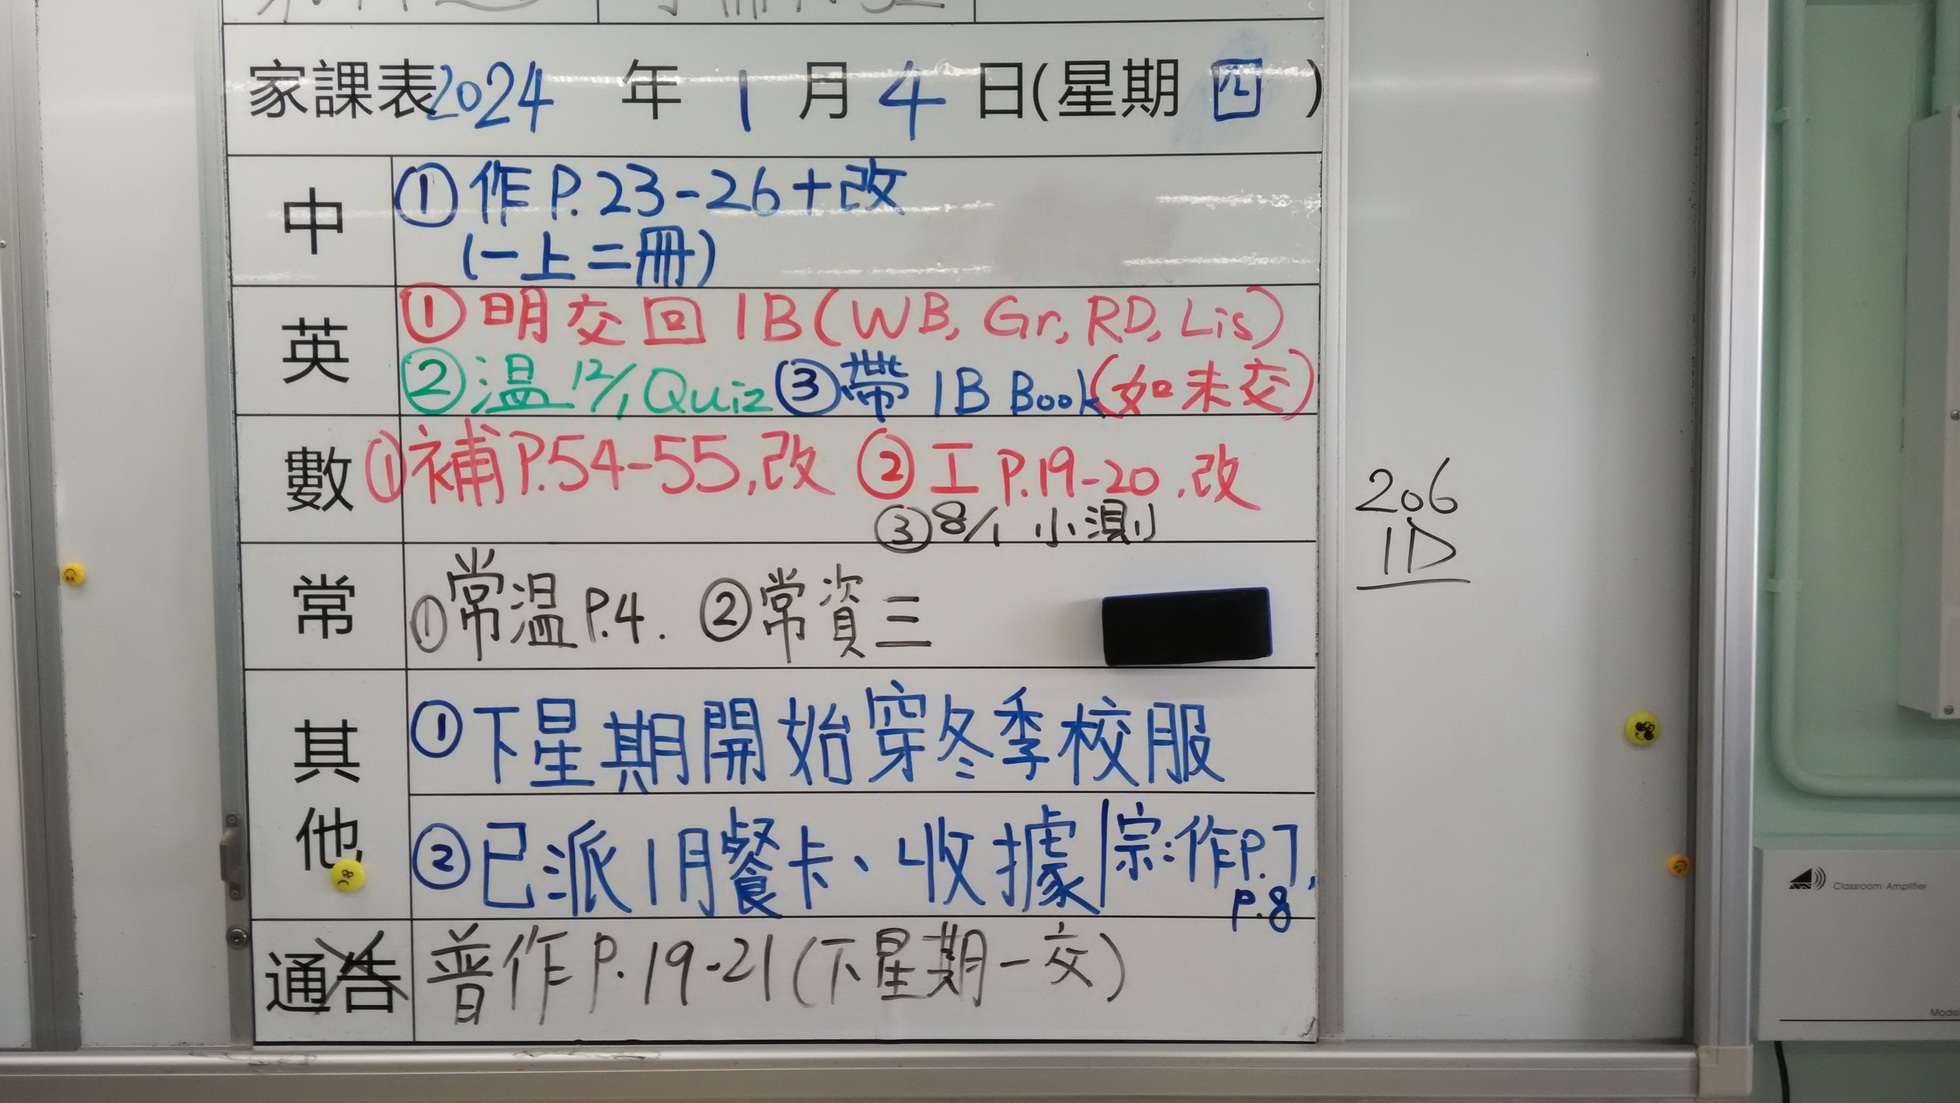 家課表2024年1月4日(星期四)
中
①作P.23-26+改
(一上二冊)
英
①明交回1B(WB, Gr, RD, Lis)
②温12/1 Quiz ③帶1B Book(如未交)
數
①補P.54-55,改 ②工P.19-20.改
③8/1小測
常
①常温P.4. ②常資三
其他
①下星期開始穿冬季校服
②已派1月餐卡、收據|宗:作P.7,
P.8
通告
普作P.19-21(下星期一交)
206
1D
Classroom Amplifier
Model